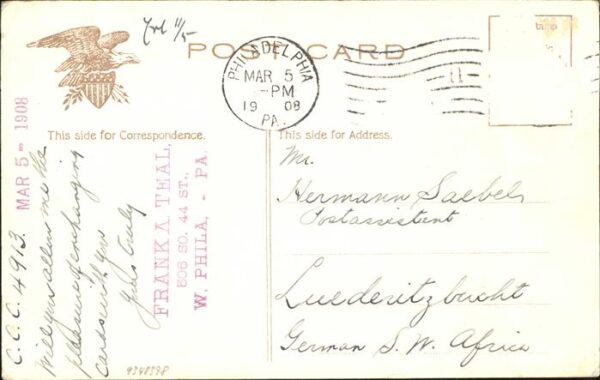 POST CARD
PHILADELPHIA
MAR 5
-PM
1908
PA.
11
This side for Correspondence.
This side for Address.
MAR 5- 1908
C.C.C. 4913.
Will you allow me the
pleasure of exchanging
cards with you
Yours truly
FRANK A. TEAL,
606 SO. 44 ST.,
W. PHILA, - PA.
Mr.
Hermann Saebels
Postassistent
Luederitzbucht
German S. W. Africa